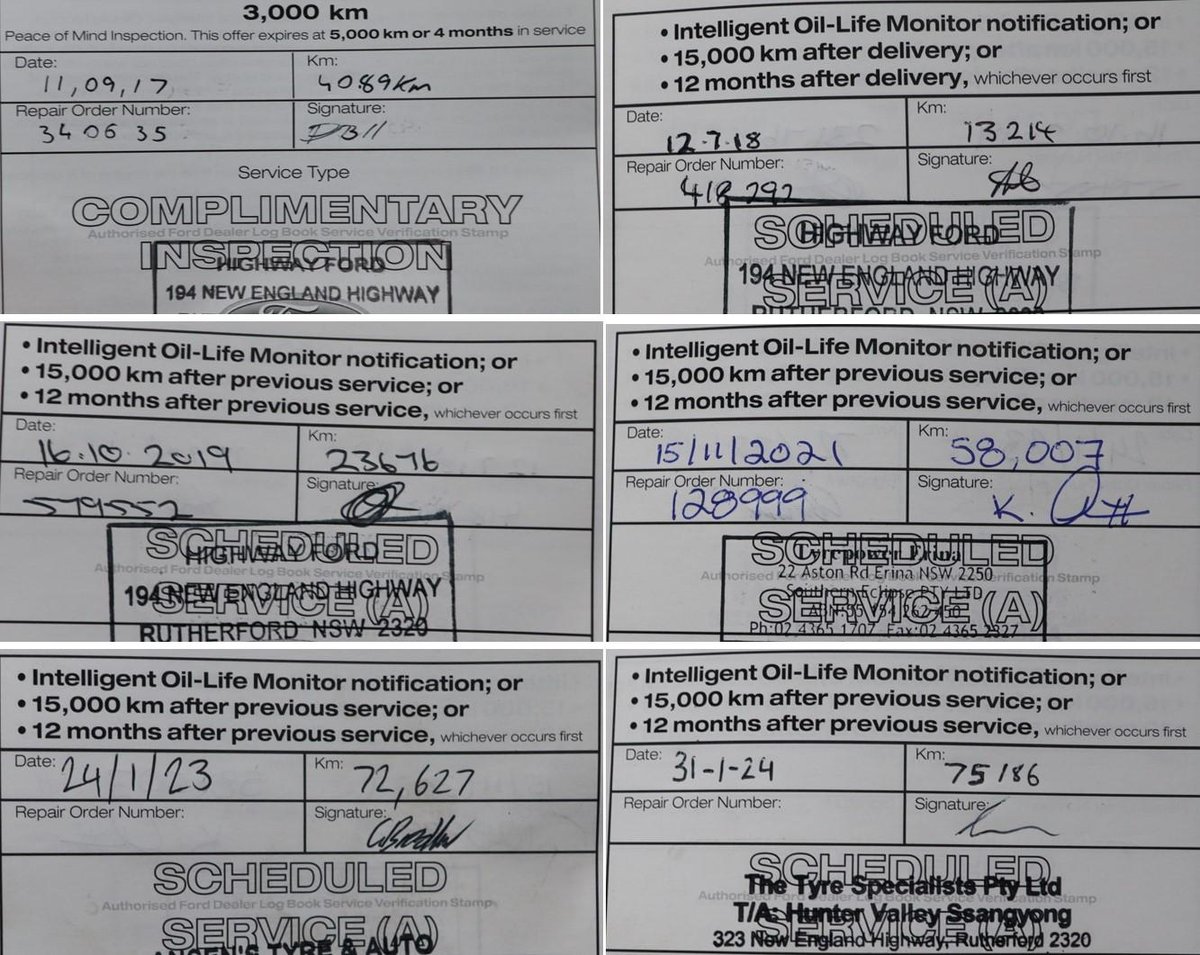 3,000 km
Peace of Mind Inspection. This offer expires at 5,000 km or 4 months in service
Date:
11,09,17
Km:
4089Km
Repair Order Number:
340635
Signature:
Service Type
COMPLIMENTARY
Authorised Ford Dealer Log Book Service Verification Stamp
INSPECTION
HIGHWAY FORD
194 NEW ENGLAND HIGHWAY
• Intelligent Oil-Life Monitor notification; or
• 15,000 km after delivery; or
• 12 months after delivery, whichever occurs first
Date:
12.7.18
Km:
13214
Repair Order Number:
418292
Signature:
SCHEDULED
HIGHWAY FORD
Authorised Ford Dealer Log Book Service Verification Stamp
194 NEW ENGLAND HIGHWAY
SERVICE (A)
RUTHERFORD NSW 2320
• Intelligent Oil-Life Monitor notification; or
• 15,000 km after previous service; or
• 12 months after previous service, whichever occurs first
Date:
16.10.2019
Km:
23676
Repair Order Number:
579552
Signature:
SCHEDULED
HIGHWAY FORD
Authorised Ford Dealer Log Book Service Verification Stamp
194 NEW ENGLAND HIGHWAY
SERVICE (A)
RUTHERFORD NSW 2320
• Intelligent Oil-Life Monitor notification; or
• 15,000 km after previous service; or
• 12 months after previous service, whichever occurs first
Date:
15/11/2021
Km:
58,007
Repair Order Number:
128999
Signature:
K.
SCHEDULED
Tyrepower Erina
22 Aston Rd Erina NSW 2250
Authorised Ford Dealer Log Book Service Verification Stamp
Southern Eclipse PTY LTD
SERVICE (A)
Ph:02 4365 1707 Fax:02 4365 2327
• Intelligent Oil-Life Monitor notification; or
• 15,000 km after previous service; or
• 12 months after previous service, whichever occurs first
Date:
24/1/23
Km:
72,627
Repair Order Number:
Signature:
SCHEDULED
Authorised Ford Dealer Log Book Service Verification Stamp
SERVICE (A)
TYRE & AUTO
• Intelligent Oil-Life Monitor notification; or
• 15,000 km after previous service; or
• 12 months after previous service, whichever occurs first
Date:
31-1-24
Km:
75186
Repair Order Number:
Signature:
SCHEDULED
The Tyre Specialists Pty Ltd
Authorised Ford Dealer Log Book Service Verification Stamp
T/A: Hunter Valley Ssangyong
SERVICE (A)
323 New England Highway, Rutherford 2320